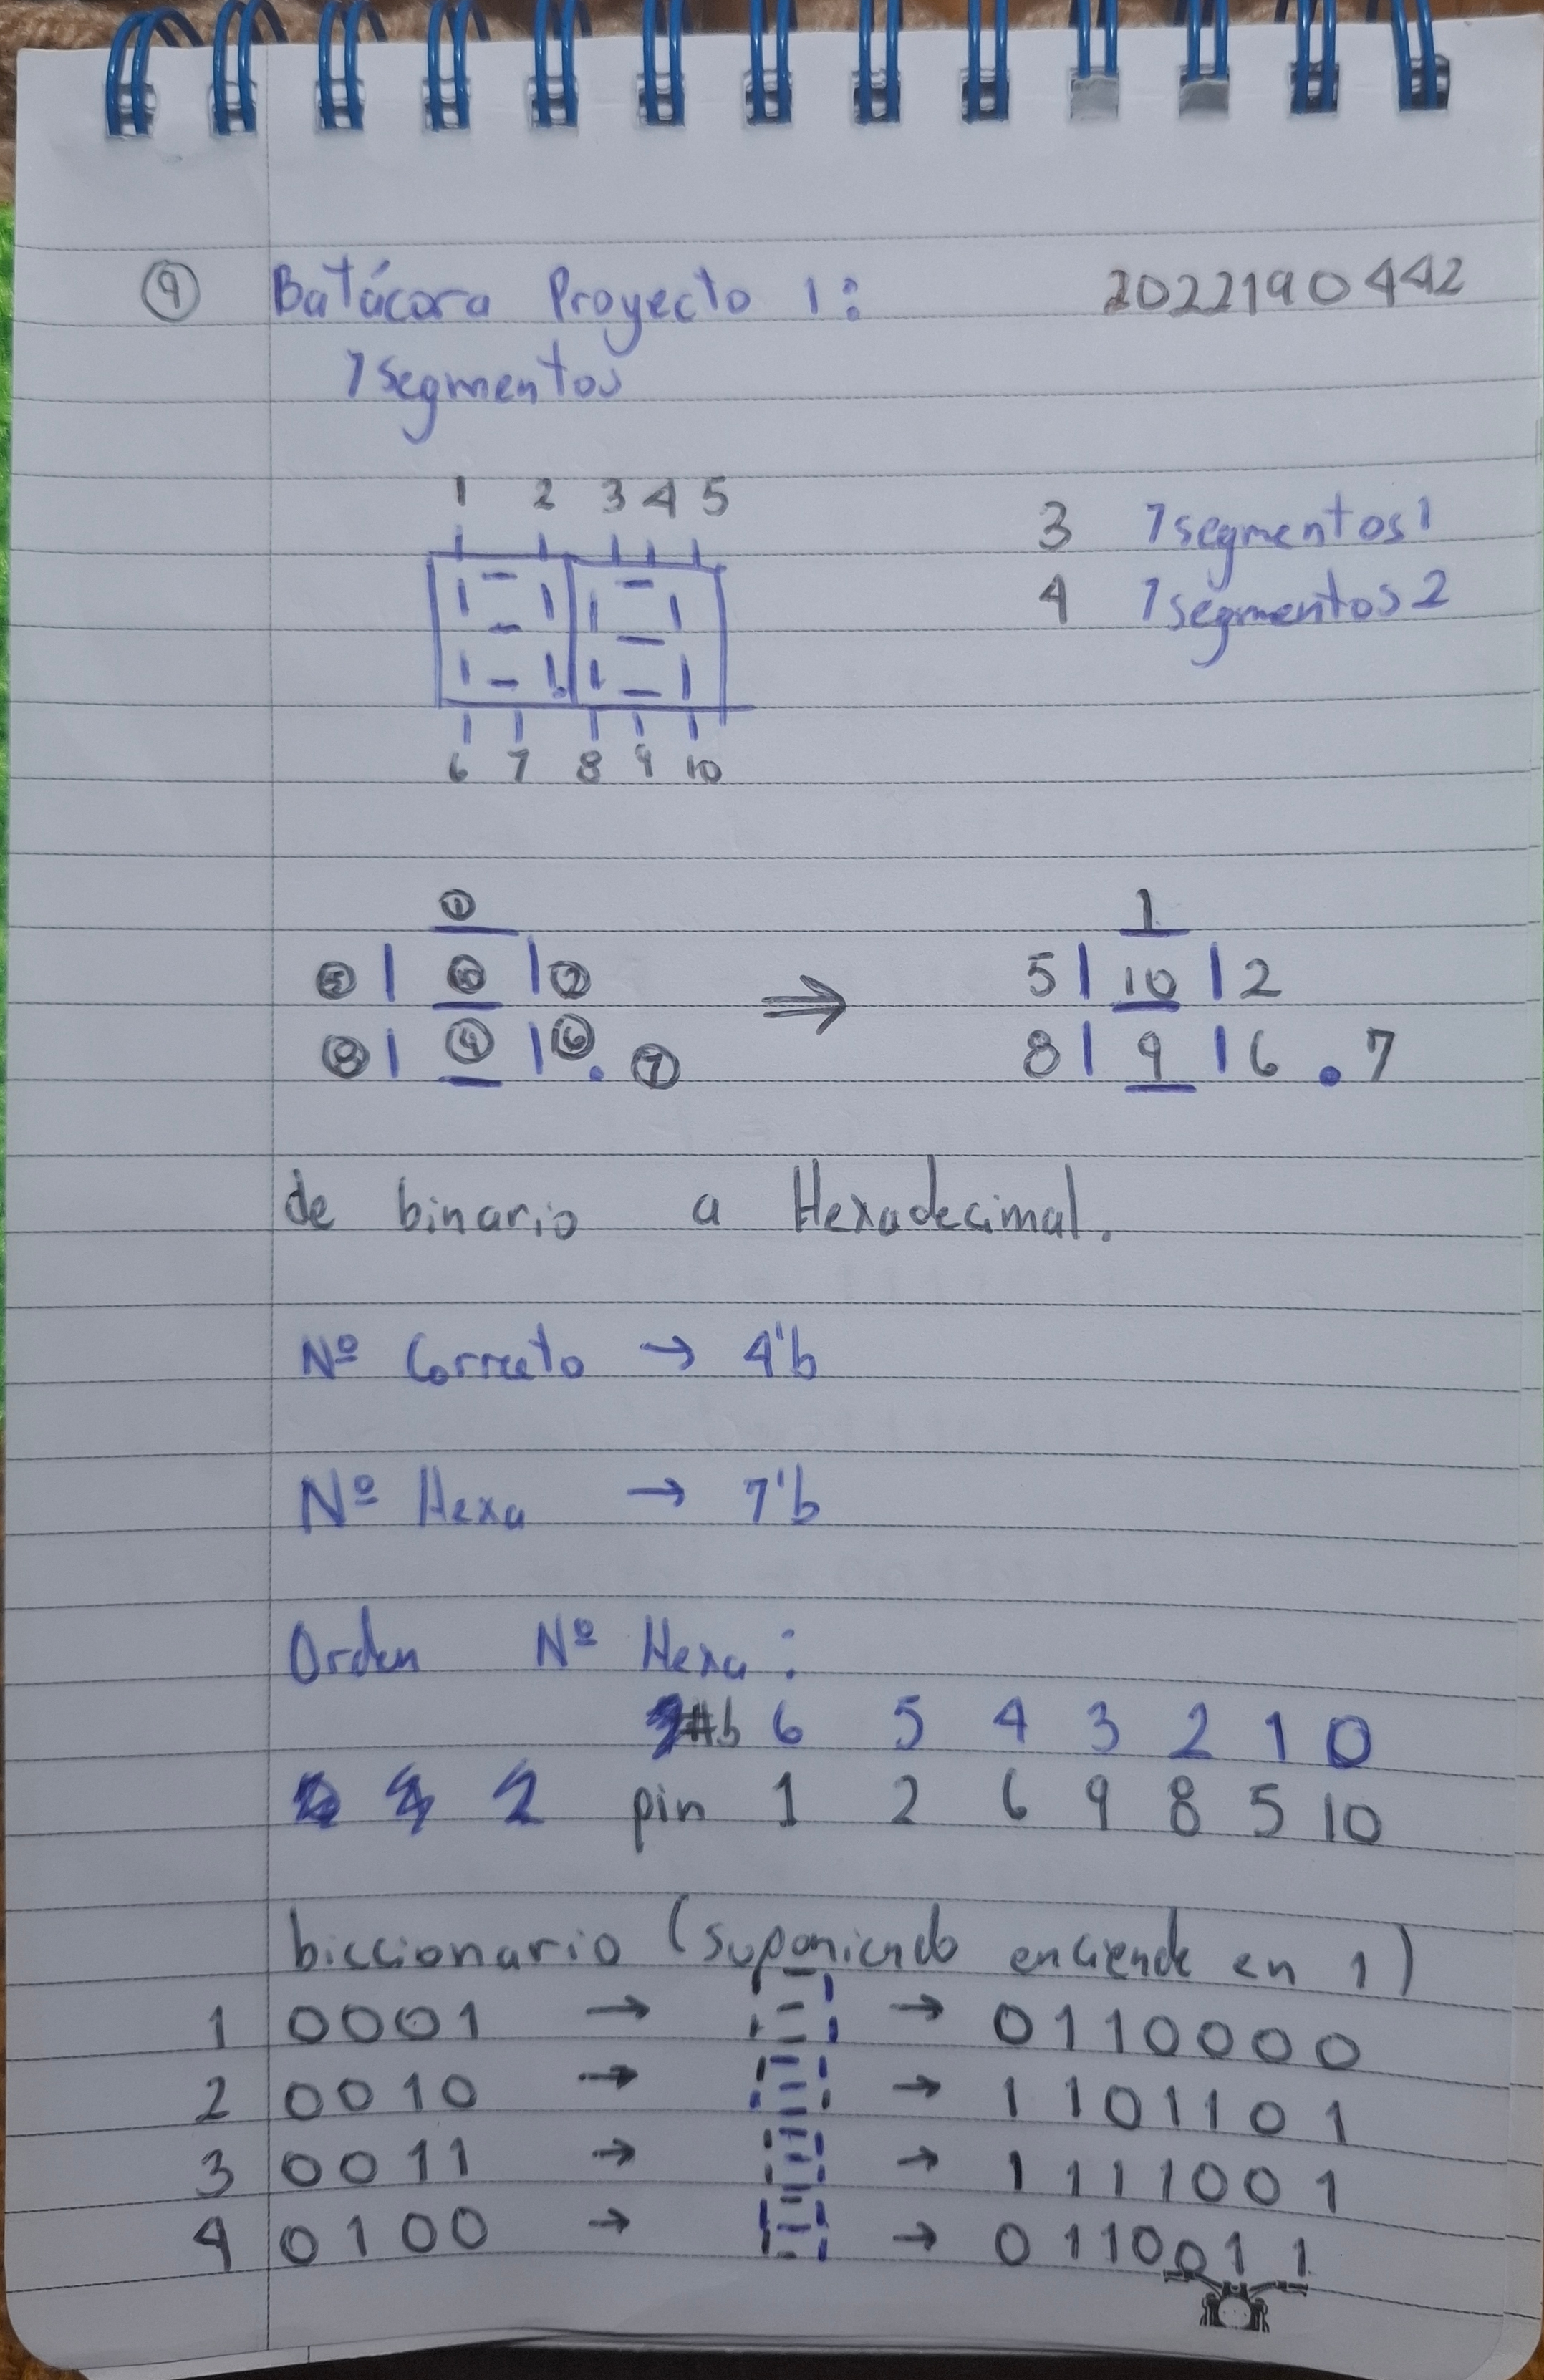 9 Batácora Proyecto 1: 2022190442
7segmentos
1 2 3 4 5
3 7segmentos1
4 7segmentos2
6 7 8 9 10
1 1
5 10 2 ⇒ 5 10 2
8 9 6 . 7 8 9 6 . 7
de binario a Hexadecimal.
Nº Correcto → 4'b
Nº Hexa → 7'b
Orden Nº Hexa:
#b 6 5 4 3 2 1 0
pin 1 2 6 9 8 5 10
biccionario (suponiendo enciende en 1)
1 0001 → → 0110000
2 0010 → → 1101101
3 0011 → → 1111001
4 0100 → → 0110011